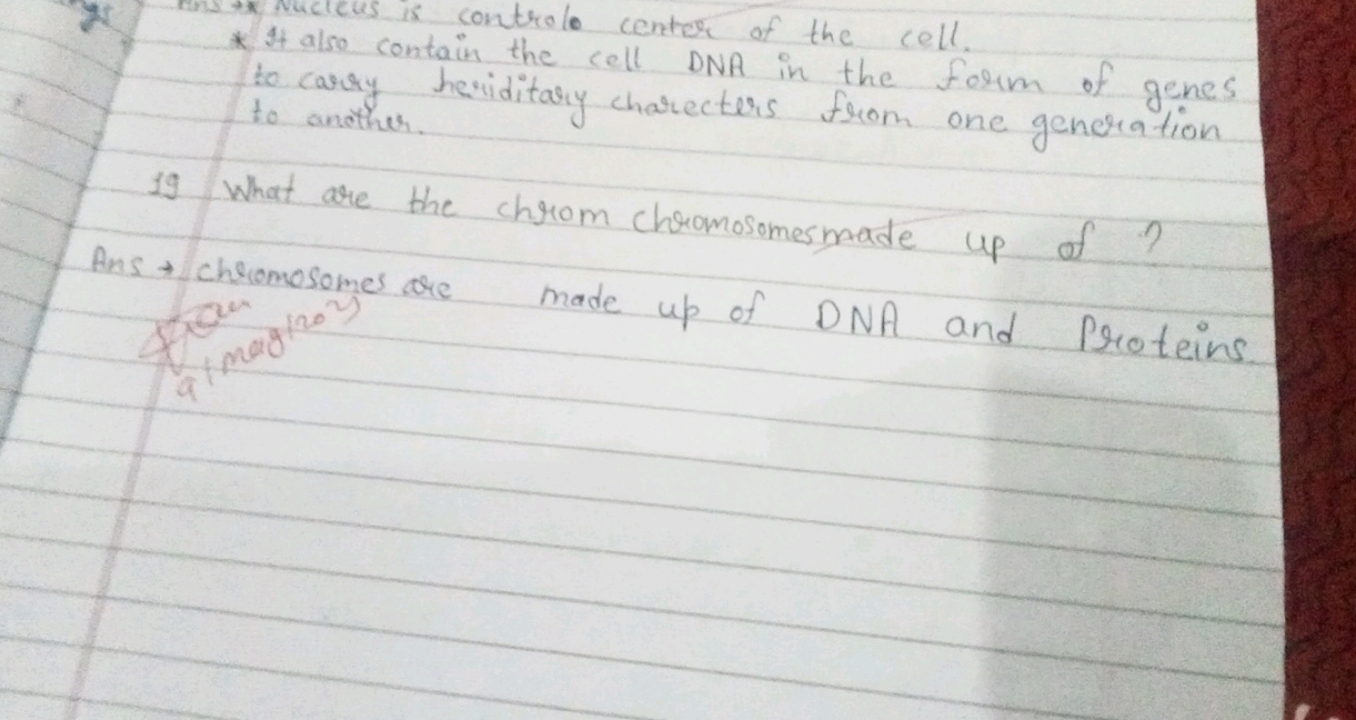 Nucleus is controle center of the cell.
* It also contain the cell DNA in the form of genes
to carry heriditary charecters from one generation
to another.
19 What are the chrom chromosomes made up of ?
Ans → chromosomes are made up of DNA and Proteins